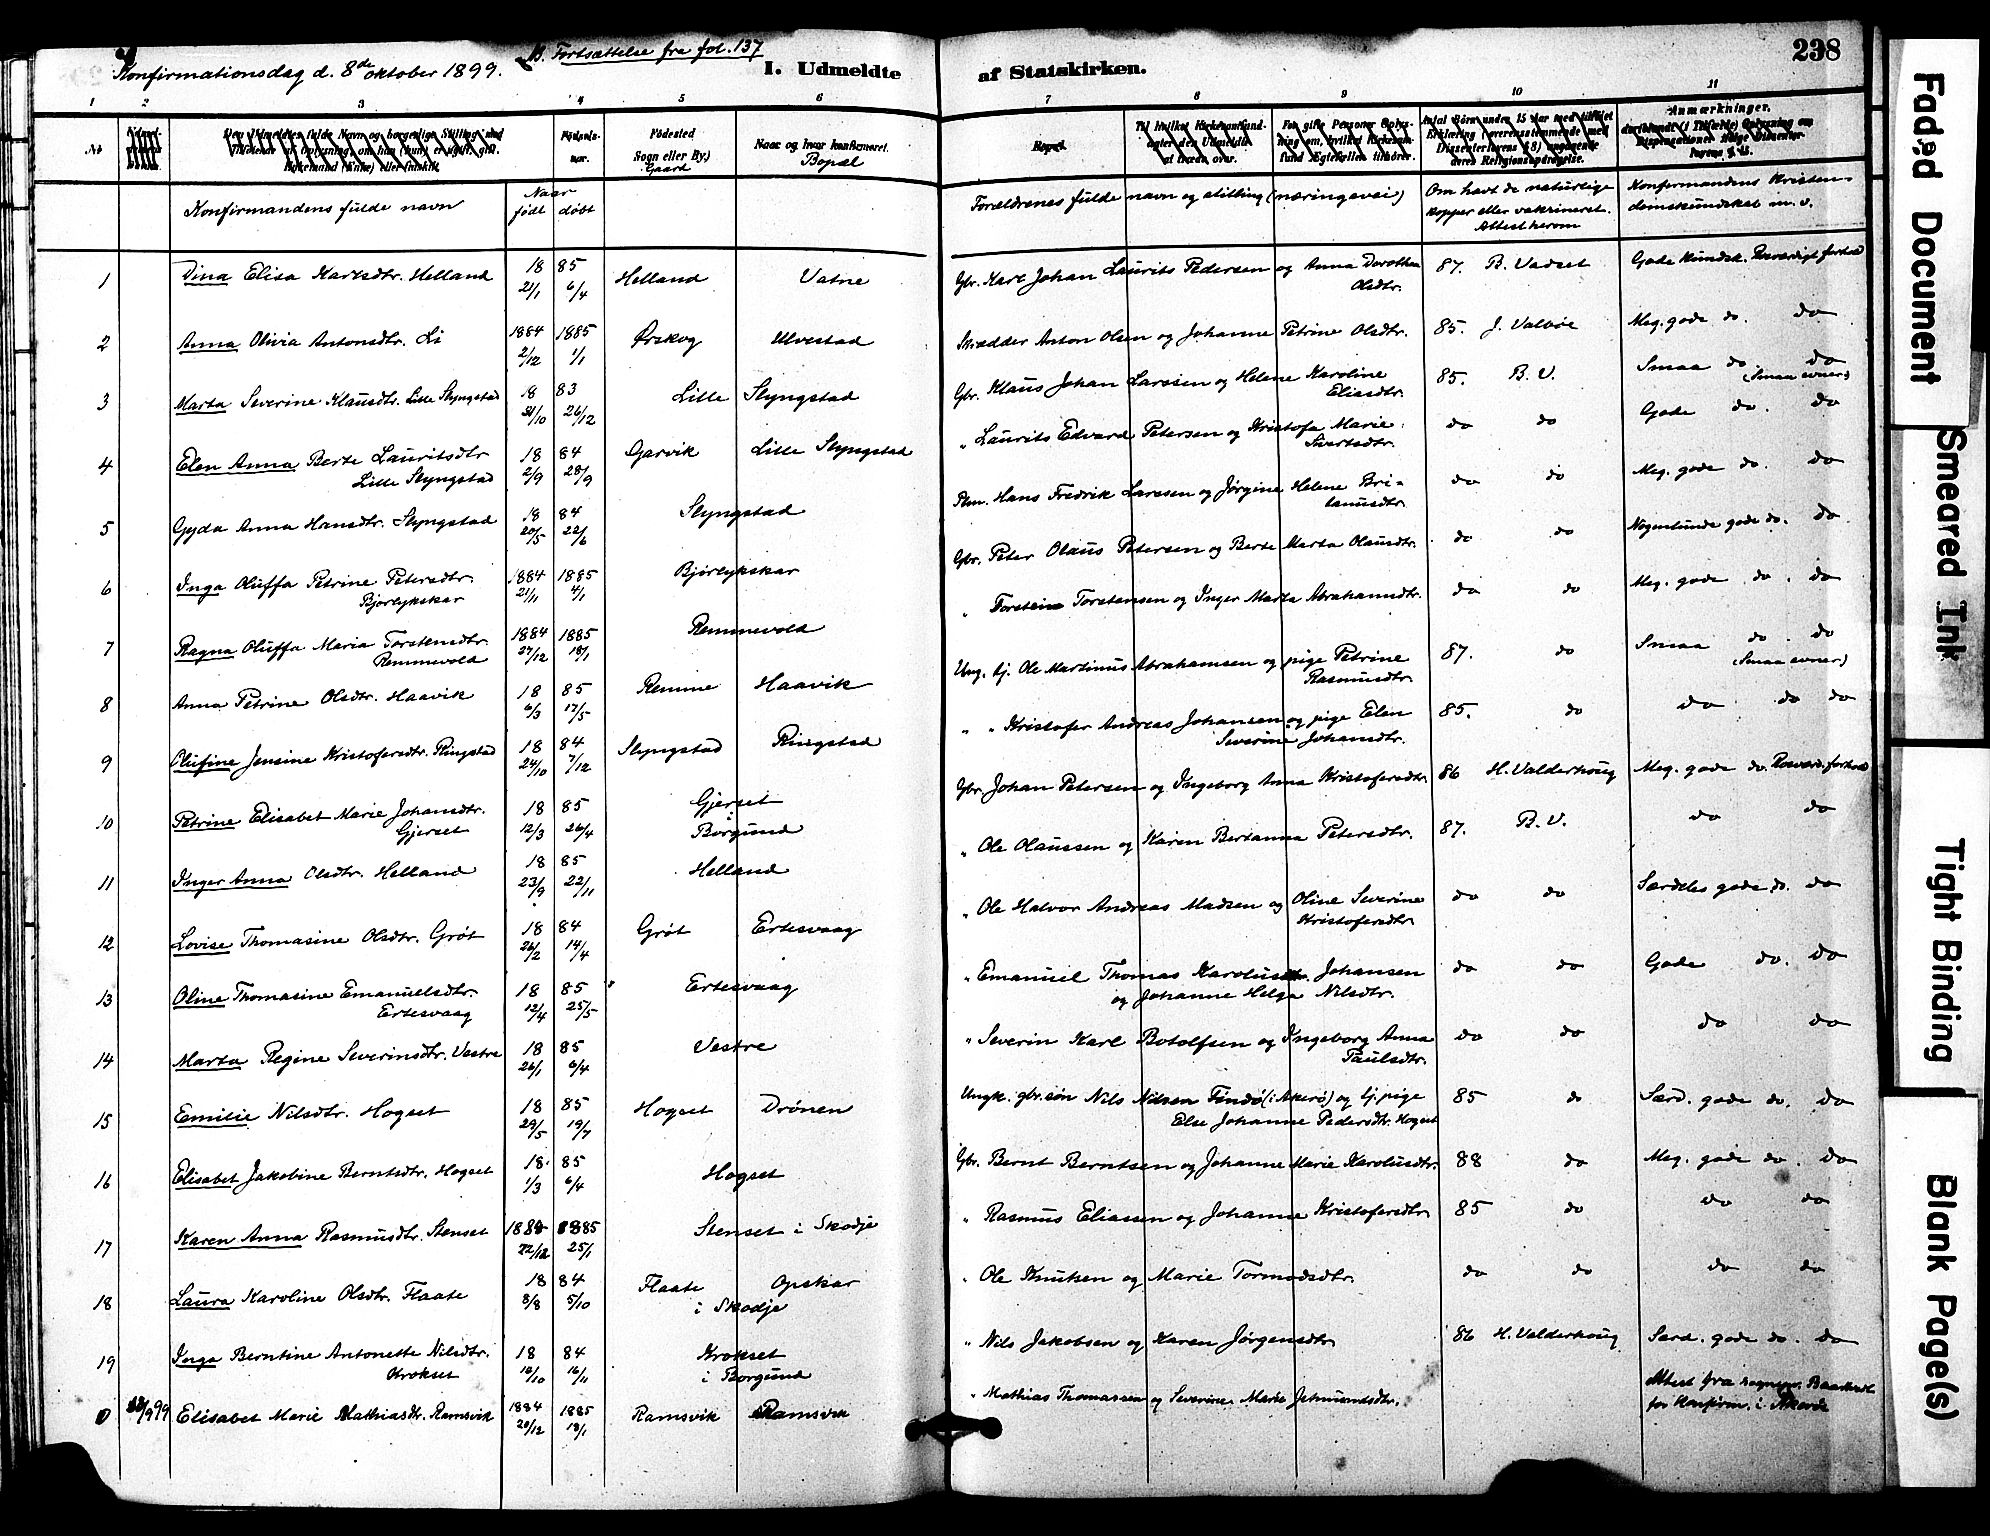 Konfirmationsdag d. 8de oktober 1899. Fortsættelse fra fol. 137
I. Udmeldte af Statskirken. 238
1 2 3 4 5 6 7 8 9 10 11
No Fødested
Sogn eller By.) Gaard
Naar og hvor konfirmeret.
Bopæl
Anmærkninger.
Konfirmandens fulde navn
Naar
født døbt
Forældrenes fulde navn og stilling (næringsvei)
Om havt de naturlige
kopper eller vakcineret.
Attest herom
Konfirmandens kristen-
domskundskab m. v.
1 Dina Elisa Karlsdtr. Helland 18 85 21/1 6/4 Helland Vatne Gbr. Karl Johan Laurits Pedersen og Anna Dorothea Olsdtr. 87. B. Vadset Gode kundsk. Rosværdigt forhold
2 Anna Olivia Antonsdtr. Li 1884 1885 2/12 1/1 Ørskog Ulvestad Skrædder Anton Olsen og Johanne Petrine Olsdtr. 85. J. Valbøe Meg. gode do. do
3 Marta Severine Klausdtr. Lille Slyngstad 18 83 31/10 26/12 Lille Slyngstad Gbr. Klaus Johan Larssen og Helene Karoline Eliasdtr. 85. B. V. Smaa do do (Smaa evner)
4 Elen Anna Berte Lauritsdtr Lille Slyngstad 18 84 2/9 28/9 Garvik Lille Slyngstad " Laurits Edvard Petersen og Kristofa Marie Sivertsdtr. do do Gode do. do
5 Gyda Anna Hansdtr. Slyngstad 18 84 20/5 22/6 Slyngstad Hans Fredrik Larssen og Jørgine Helene Bri- tanusdtr. do do Meg. gode do. do
6 Inga Oluffa Petrine Petersdtr. Bjørlykskar 1884 1885 21/11 4/1 Bjørlykskar Gbr. Peter Olaus Petersen og Berte Marta Olausdtr. do do Nogenlunde gode do. do
7 Ragna Oluffa Maria Torstensdtr. Remmevold 1884 1885 27/12 18/1 Remmevold " Torstein Torstensen og Inger Marta Abrahamsdtr. do do Meg. gode do. do
8 Anna Petrine Olsdtr. Haavik 18 85 6/3 17/5 Remme Haavik Ung. tj. Ole Martinus Abrahamsen og pige Petrine Rasmusdtr. 87. do Smaa do. do (Smaa evner)
9 Olufine Jensine Kristofersdtr. Ringstad 18 84 24/10 7/12 Slyngstad Ringstad " " Kristofer Andreas Johansen og pige Elen Severine Johansdtr. 85. do do do do
10 Petrine Elisabet Marie Johansdtr. Gjerset 18 85 12/3 26/4 Gjerset Borgund Gbr. Johan Petersen og Ingeborg Anna Kristofersdtr. 86 H. Valderhoug Meg. gode do. Rosværd. forhold
11 Inger Anna Olsdtr. Helland 18 85 23/9 22/11 Helland " Ole Olaussen og Karen Bertanna Petersdtr. 87. B. V. do do
12 Lovise Thomasine Olsdtr. Grøt 18 84 26/2 14/4 Grøt Ertesvaag " Ole Halvor Andreas Madsen og Oline Severine Kristofersdtr. do do Særdeles gode do. do
13 Oline Thomasine Emanuelsdtr. Ertesvaag 18 85 12/4 25/5 Ertesvaag " Emanuel Thomas Karolus Johansen og Johanne Helga Nilsdtr. do do Gode do. do
14 Marta Regine Severinsdtr. Vestre 18 85 26/1 6/4 Vestre " Severin Karl Botolfsen og Ingeborg Anna Paulsdtr. do do do do
15 Emilie Nilsdtr. Hogset 18 85 29/5 19/7 Hogset Drønen Ungk. gbr.søn Nils Nilsen Findø (i Akerø) og tj. pige Else Johanne Pedersdtr. Hogset 85 do Særd. gode do. do
16 Elisabet Jakobine Berntsdtr. Hogset 18 85 1/3 6/4 Hogset Gbr. Bernt Berntsen og Johanne Marie Karolusdtr. 88 do Meg. gode do. do
17 Karen Anna Rasmusdtr. Stenset 1884 1885 22/12 25/1 Stenset i Skodje " Rasmus Eliassen og Johanne Kristofersdtr. 85 do do do
18 Laura Karoline Olsdtr. Flaate 18 84 8/8 5/10 Flaate Opskar i Skodje " Ole Knutsen og Marie Tormodsdtr. do do do do
19 Inga Berntine Antonette Nilsdtr. Krokset 18 84 18/10 16/11 Krokset i Borgund " Nils Jakobsen og Karen Jørgensdtr 86 H. Valderhoug Særd. gode do. do
0 Elisabet Marie Mathiasdtr. Ramsvik 1884 1885 20/12 18/1 Ramsvik Ramsvik " Mathias Thomassen og Severine Marie Jetmundsdtr. Attest fra sognepr. for Konfirm. i Akerø
Faded Document
Smeared Ink
Tight Binding
Blank Page(s)